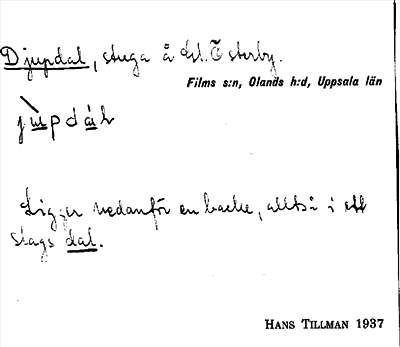 Djupdal, stuga å Gl. Österby.
Films s:n, Olands h:d, Uppsala län
jùpdáɫ
Ligger nedanför en backe, alltså i ett
slags dal.
HANS TILLMAN 1937